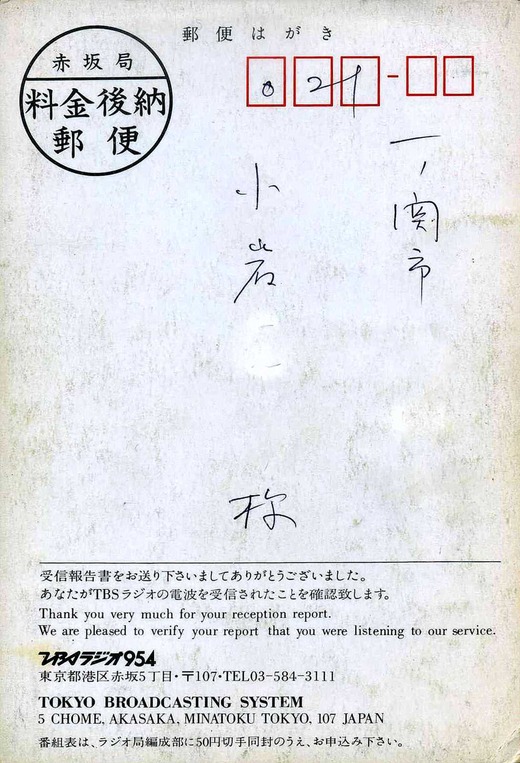 郵便はがき
赤坂局
料金後納
郵便
021
一ノ関市
小岩
様
受信報告書をお送り下さいましてありがとうございました。
あなたがTBSラジオの電波を受信されたことを確認致します。
Thank you very much for your reception report.
We are pleased to verify your report that you were listening to our service.
TBSラジオ954
東京都港区赤坂5丁目・〒107・TEL03-584-3111
TOKYO BROADCASTING SYSTEM
5 CHOME, AKASAKA, MINATOKU TOKYO, 107 JAPAN
番組表は、ラジオ局編成部に50円切手同封のうえ、お申込み下さい。